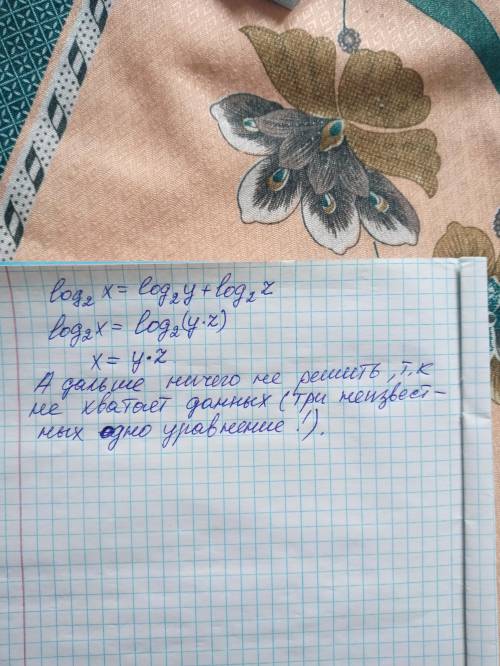 log₂ x = log₂ y + log₂ z
log₂ x = log₂ (y·z)
x = y·z
А дальше ничего не решить, т.к
не хватает данных (три неизвест-
ных одно уравнение!).